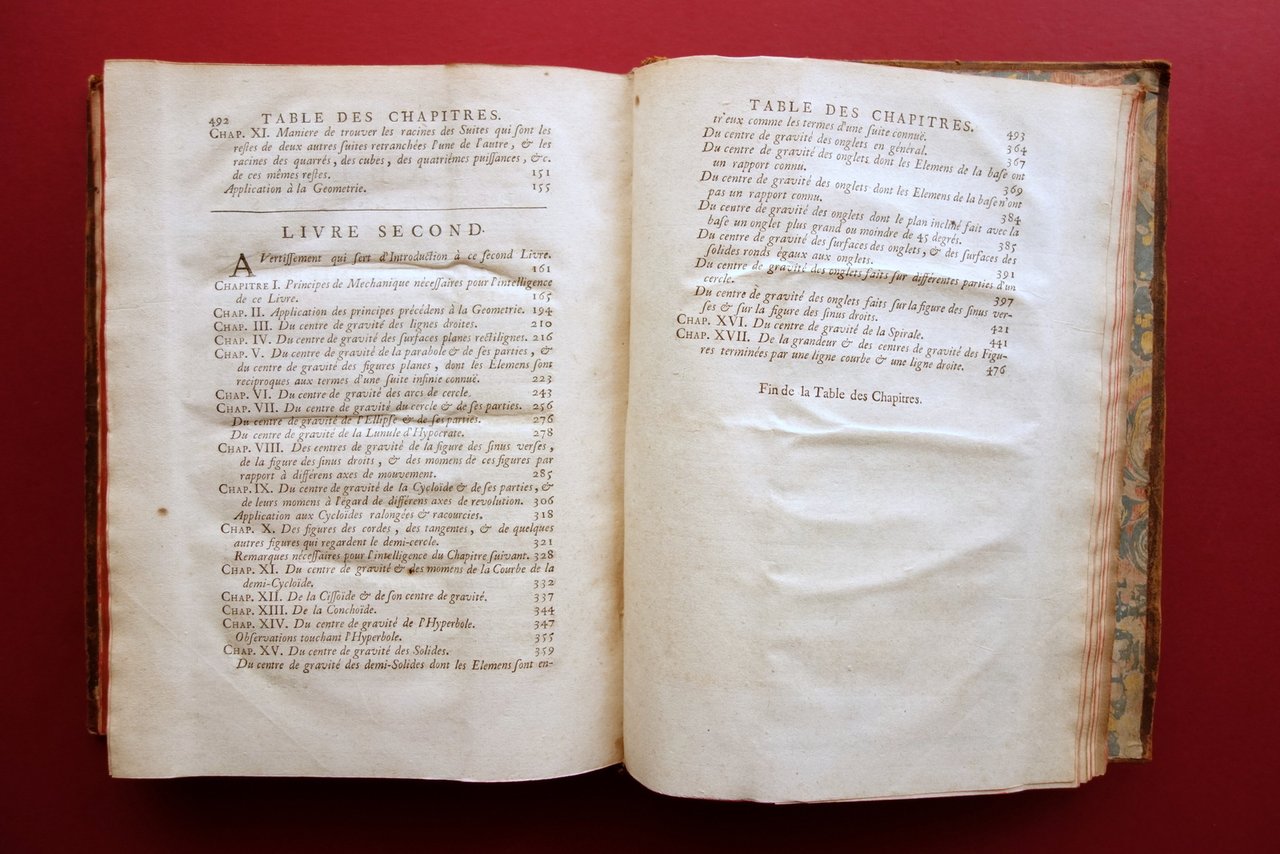 492 TABLE DES CHAPITRES.
CHAP. XI. Maniere de trouver les racines des Suites qui ſont les
reſtes de deux autres ſuites retranchées l'une de l'autre, & les
racines des quarrés, des cubes, des quatriémes puiſſances, &c.
de ces mêmes reſtes. 151
Application à la Geometrie. 155
LIVRE SECOND.
AVertiſſement qui ſert d'Introduction à ce ſecond Livre.
161
CHAPITRE I. Principes de Mechanique néceſſaires pour l'intelligence
de ce Livre. 165
CHAP. II. Application des principes précédens à la Geometrie. 194
CHAP. III. Du centre de gravité des lignes droites. 210
CHAP. IV. Du centre de gravité des ſurfaces planes rectilignes. 216
CHAP. V. Du centre de gravité de la parabole & de ſes parties, &
du centre de gravité des figures planes, dont les Elemens ſont
reciproques aux termes d'une ſuite infinie connuë. 223
CHAP. VI. Du centre de gravité des arcs de cercle. 243
CHAP. VII. Du centre de gravité du cercle & de ſes parties. 256
Du centre de gravité de l'Ellipſe & de ſes parties. 276
Du centre de gravité de la Lunule d'Hypocrate. 278
CHAP. VIII. Des centres de gravité de la figure des ſinus verſes,
de la figure des ſinus droits, & des momens de ces figures par
rapport à différens axes de mouvement. 285
CHAP. IX. Du centre de gravité de la Cycloïde & de ſes parties, &
de leurs momens à l'égard de différens axes de revolution. 306
Application aux Cycloïdes ralongées & racourcies. 318
CHAP. X. Des figures des cordes, des tangentes, & de quelques
autres figures qui regardent le demi-cercle. 321
Remarques néceſſaires pour l'intelligence du Chapitre ſuivant. 328
CHAP. XI. Du centre de gravité & des momens de la Courbe de la
demi-Cycloïde. 332
CHAP. XII. De la Ciſſoïde & de ſon centre de gravité. 337
CHAP. XIII. De la Conchoïde. 344
CHAP. XIV. Du centre de gravité de l'Hyperbole. 347
Obſervations touchant l'Hyperbole. 355
CHAP. XV. Du centre de gravité des Solides. 359
Du centre de gravité des demi-Solides dont les Elemens ſont en-
TABLE DES CHAPITRES. 493
tr'eux comme les termes d'une ſuite connuë. 364
Du centre de gravité des onglets en général. 367
Du centre de gravité des onglets dont les Elemens de la baſe ont
un rapport connu. 369
Du centre de gravité des onglets dont les Elemens de la baſe n'ont
pas un rapport connu. 384
Du centre de gravité des onglets dont le plan incliné fait avec la
baſe un onglet plus grand ou moindre de 45 degrés. 385
Du centre de gravité des ſurfaces des onglets, & des ſurfaces des
ſolides ronds égaux aux onglets. 391
Du centre de gravité des onglets faits ſur différentes parties d'un
cercle. 397
Du centre de gravité des onglets faits ſur la figure des ſinus ver-
ſes & ſur la figure des ſinus droits. 421
CHAP. XVI. Du centre de gravité de la Spirale. 441
CHAP. XVII. De la grandeur & des centres de gravité des Figu-
res terminées par une ligne courbe & une ligne droite. 476
Fin de la Table des Chapitres.